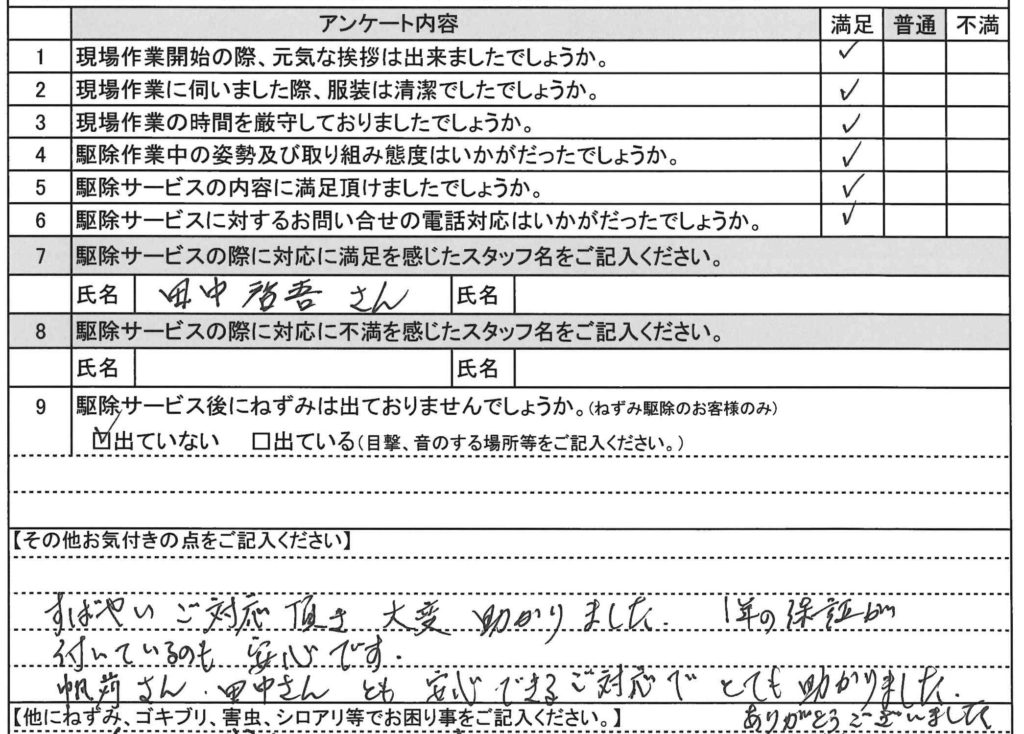 アンケート内容 満足 普通 不満
1 現場作業開始の際、元気な挨拶は出来ましたでしょうか。 ✓
2 現場作業に伺いました際、服装は清潔でしたでしょうか。 ✓
3 現場作業の時間を厳守しておりましたでしょうか。 ✓
4 駆除作業中の姿勢及び取り組み態度はいかがだったでしょうか。 ✓
5 駆除サービスの内容に満足頂けましたでしょうか。 ✓
6 駆除サービスに対するお問い合せの電話対応はいかがだったでしょうか。 ✓
7 駆除サービスの際に対応に満足を感じたスタッフ名をご記入ください。
氏名 田中 啓吾 さん 氏名
8 駆除サービスの際に対応に不満を感じたスタッフ名をご記入ください。
氏名 氏名
9 駆除サービス後にねずみは出ておりませんでしょうか。(ねずみ駆除のお客様のみ)
☑出ていない 口出ている(目撃、音のする場所等をご記入ください。)
【その他お気付きの点をご記入ください】
すばやい ご対応 頂き 大変 助かりました. 1年の保証が
付いているのも 安心です.
さん. 田中さん とも 安心できるご対応で とても助かりました.
ありがとうございました
【他にねずみ、ゴキブリ、害虫、シロアリ等でお困り事をご記入ください。】